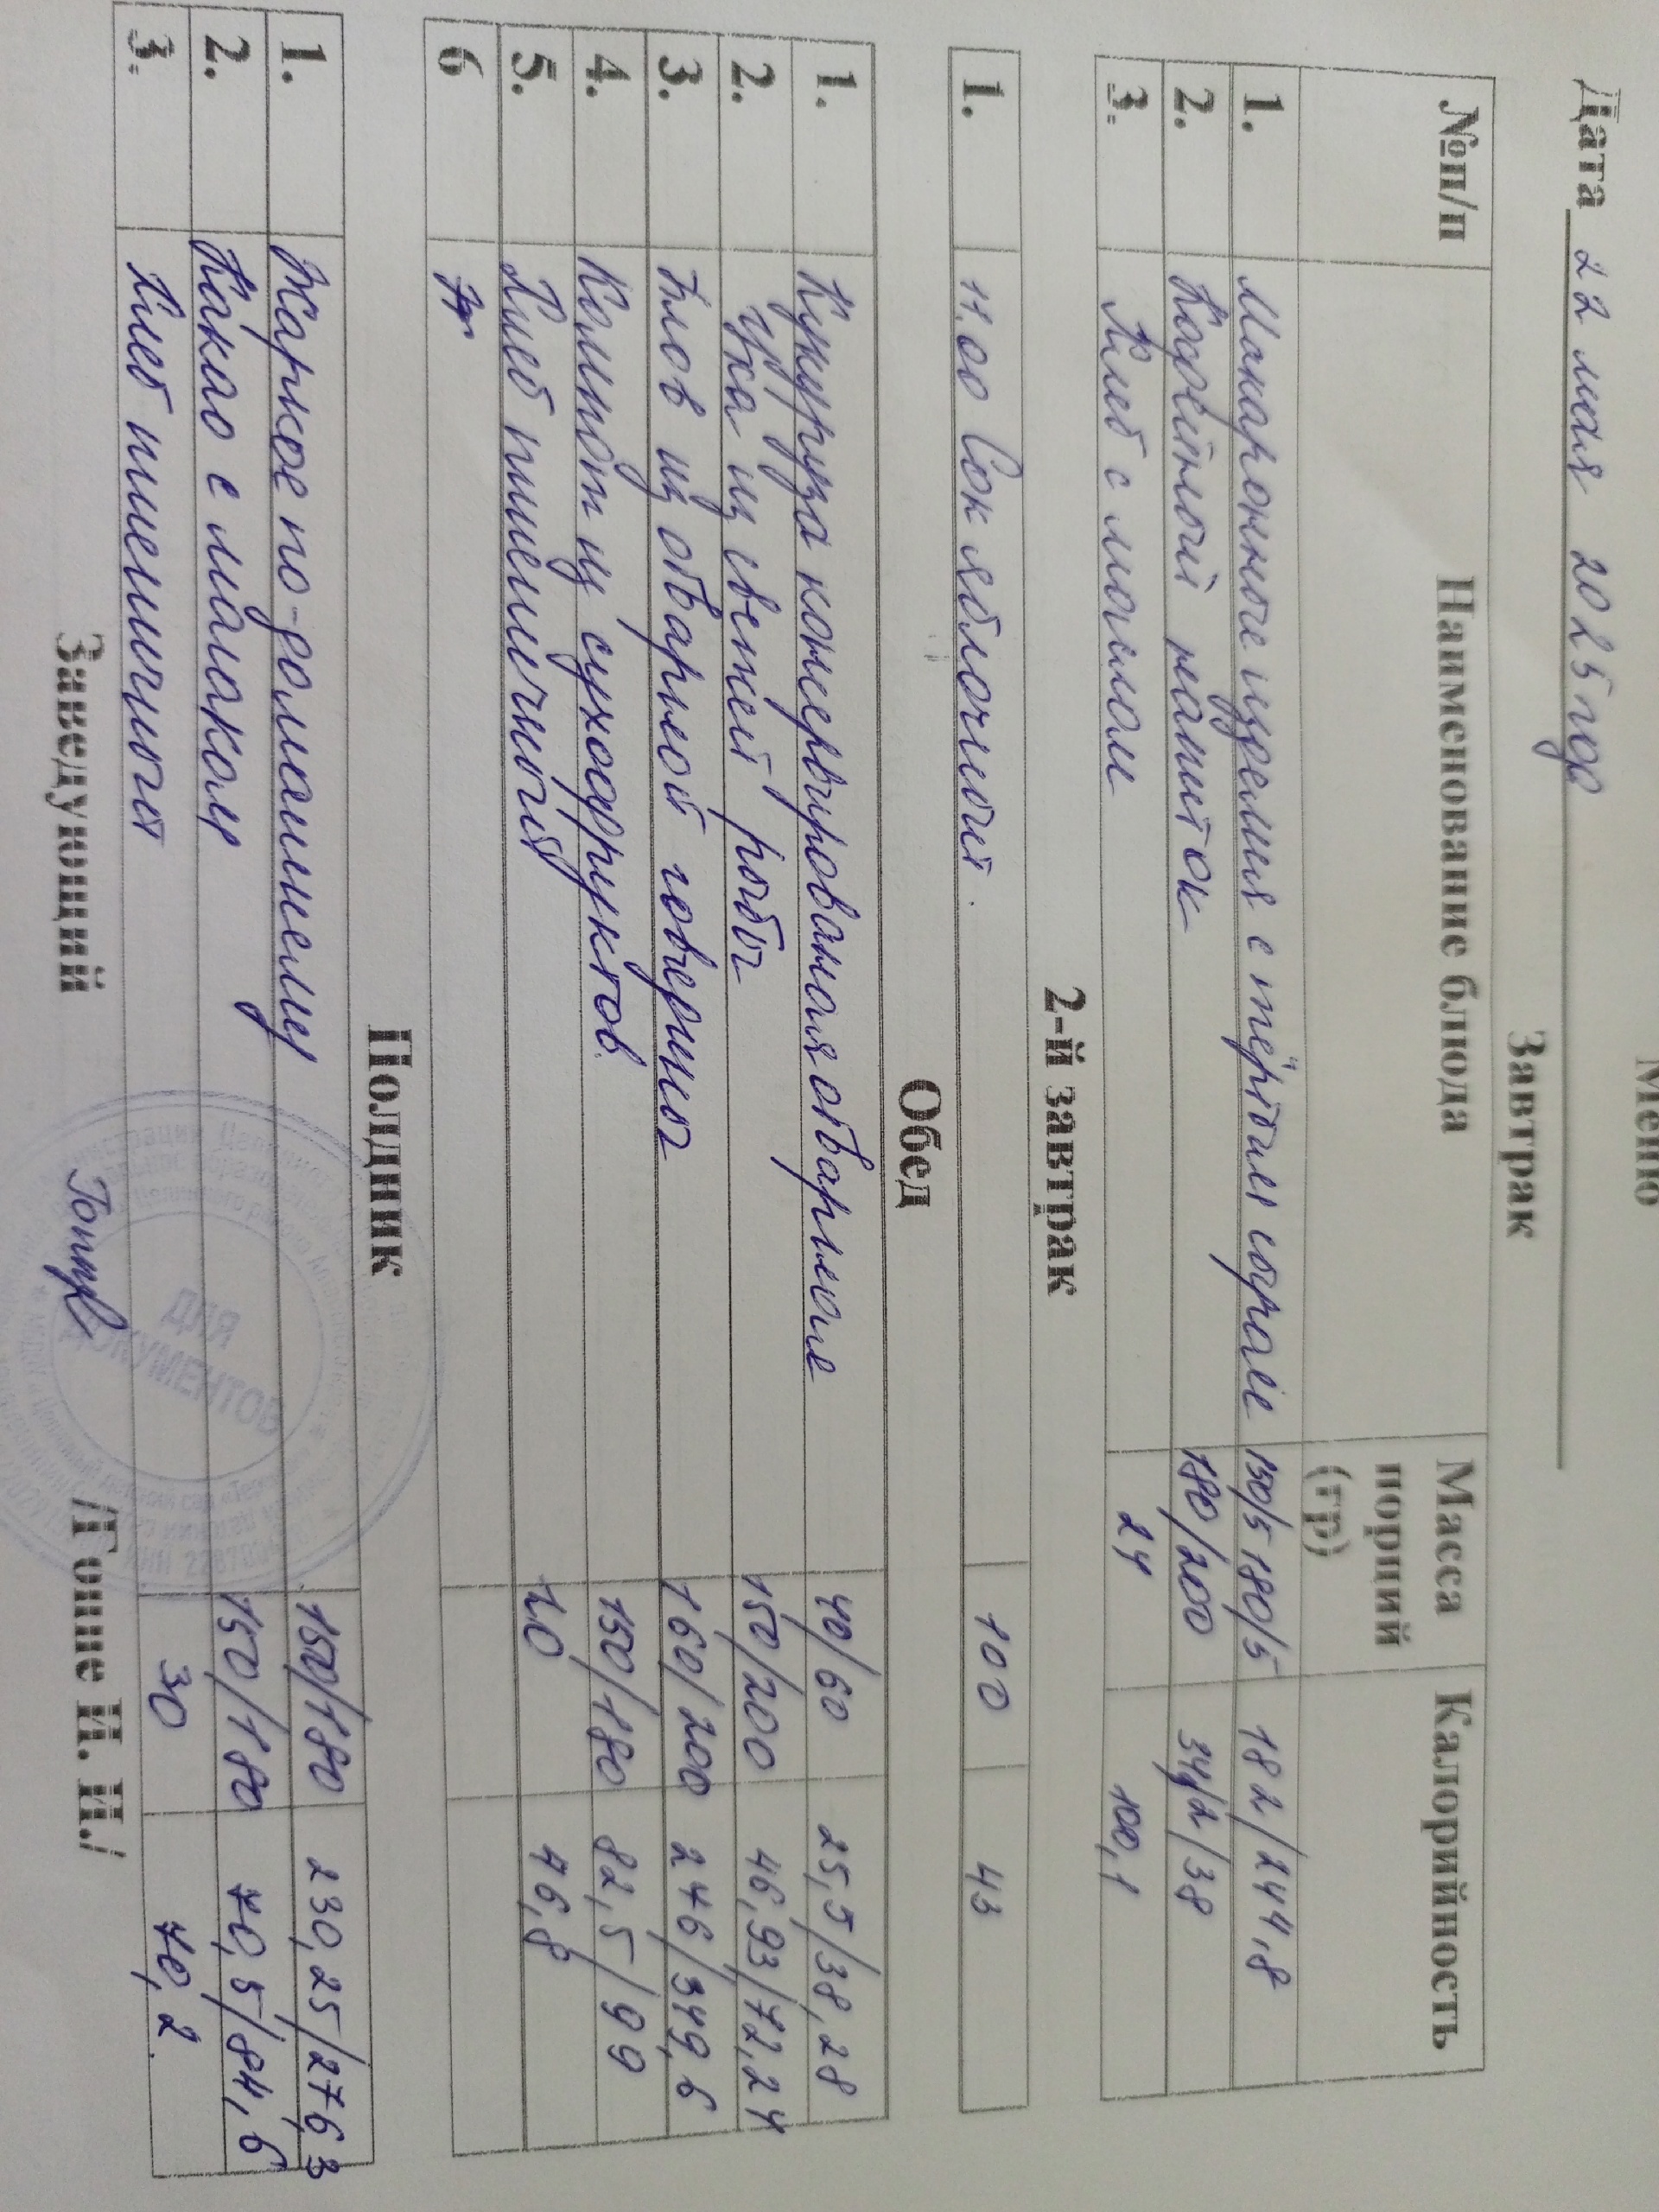 Меню
Дата 22 мая 2025 год
Завтрак
№п/п Наименование блюда Масса порций (гр) Калорийность
1. Макаронные изделия с тёртым сыром 150/5 180/5 182/244,8
2. Кофейный напиток 180/200 34,2/38
3. Хлеб с маслом 24 100,1
2-й завтрак
1. 11.00 Сок яблочный 100 43
Обед
1. Кукуруза консервированная отварная 40/60 25,5/38,28
2. Уха из свежей рыбы 150/200 46,93/72,24
3. Плов из отварной говядины 160/200 246/349,6
4. Компот из сухофруктов 150/180 82,5/99
5. Хлеб пшеничный 20 46,8
6
Полдник
1. Жаркое по-домашнему 150/180 230,25/276,3
2. Какао с молоком 150/180 70,5/84,6
3. Хлеб пшеничный 30 70,2
Заведующий /Гоппе И. И./
ДЛЯ
ДОКУМЕНТОВ